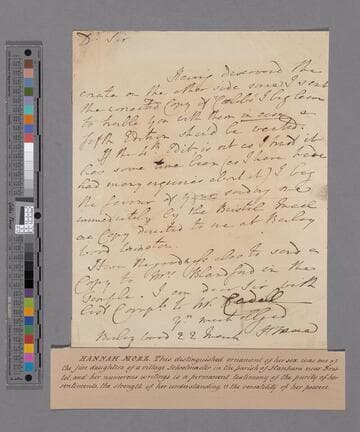 Dr Sir
Having discovered the
errata on the other side since I sent
the corrected Copy of Cœlebs I beg leave
to trouble you with them in case a
fifth Edition should be wanted.
If the 4th Edit: is out as I
has some time been (as I have
had many enquiries about it) I beg
the favour of your sending me
immediately by the Bristol Mail
a Copy directed to me at Barley
Wood Wrington.
Have the goodness also to send a
Copy to Mrs. Blandford in the
Temple. I am dear Sir with
Civil Compts to Mr. Cadell
Yr much obliged
Barley Wood 22 March H More
HANNAH MORE. This distinguished ornament of her sex was one of
the five daughters of a village Schoolmaster in the parish of Hanham near Bris-
tol, and her numerous writings is a permanent testimony of the purity of her
sentiments, the strength of her understanding, & the versatility of her powers.